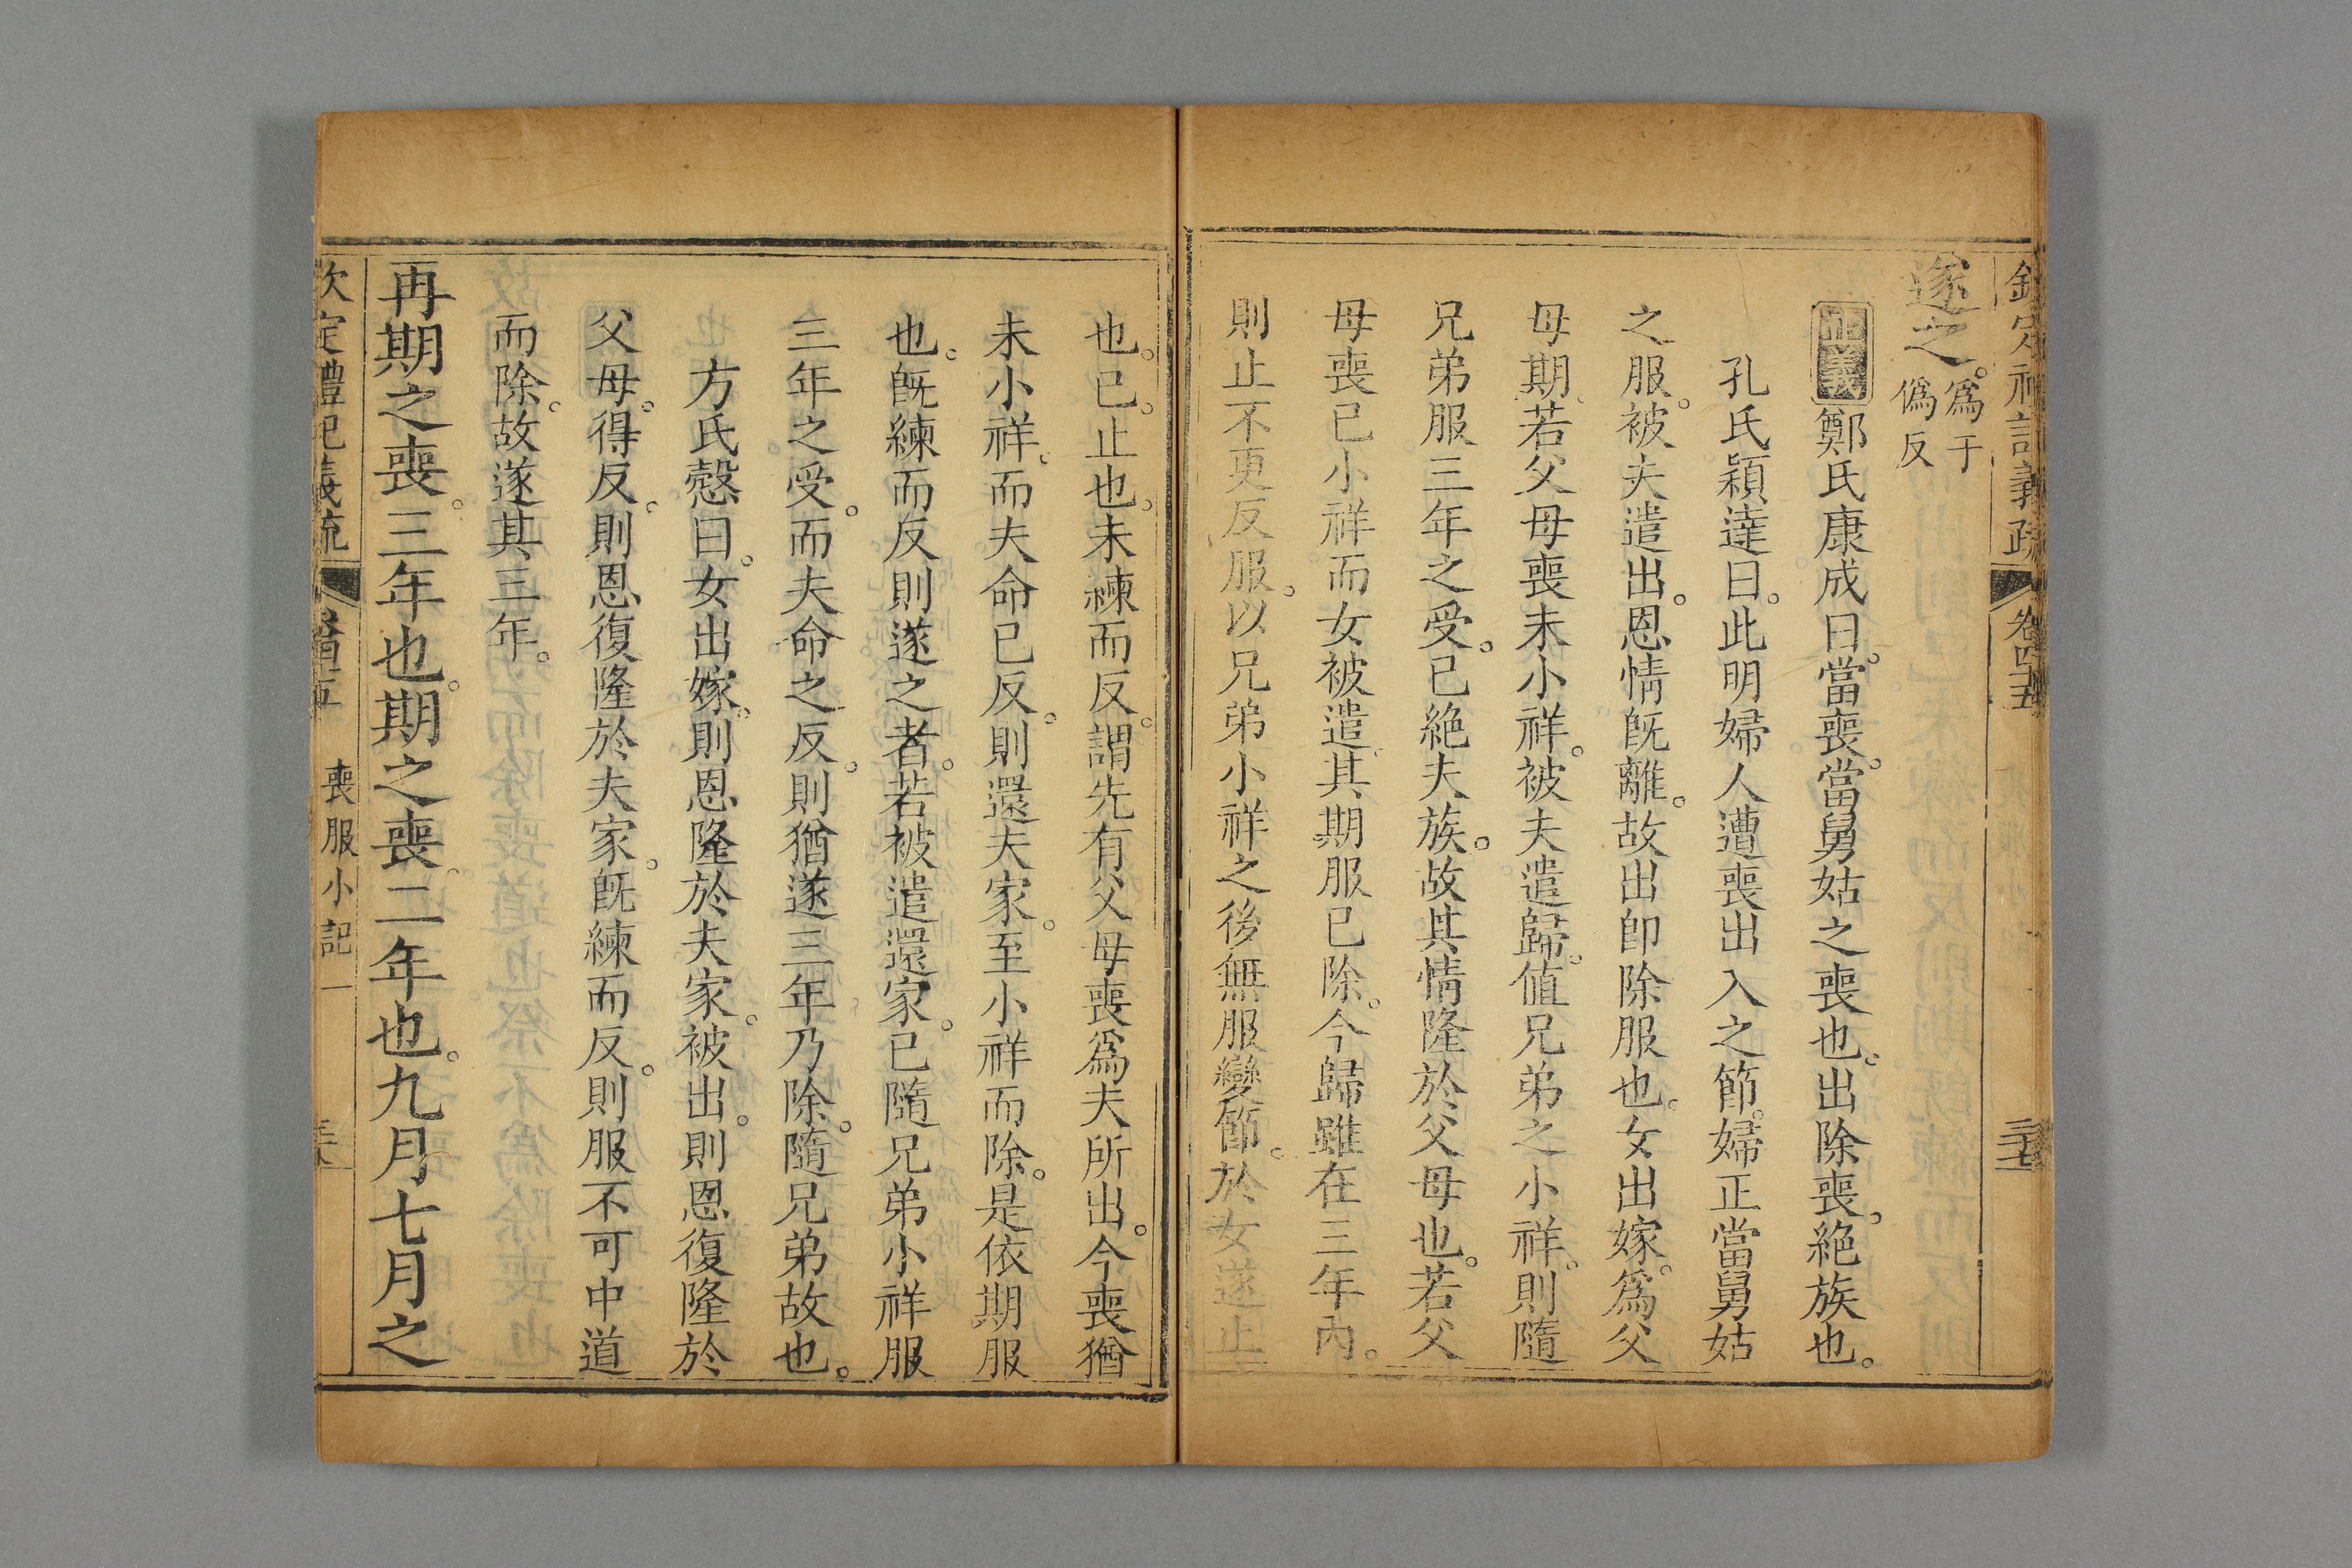 欽定禮記義疏 卷四十五
遂之。爲于
僞反
正義 鄭氏康成曰。當喪。當舅姑之喪也。出除喪。絕族也。
孔氏穎達曰。此明婦人遭喪出入之節。婦正當舅姑
之服。被夫遣出。恩情旣離。故出卽除服也。女出嫁。爲父
母期。若父母喪未小祥。被夫遣歸。値兄弟之小祥。則隨
兄弟服三年之受。已絕夫族。故其情隆於父母也。若父
母喪已小祥而女被遣。其期服已除。今歸雖在三年內。
則止不更反服。以兄弟小祥之後無服變節。於女遂止
也。已。止也。未練而反。謂先有父母喪爲夫所出。今喪猶
未小祥。而夫命已反。則還夫家。至小祥而除。是依期服
也。旣練而反則遂之者。若被遣還家。已隨兄弟小祥服
三年之受。而夫命之反。則猶遂三年乃除。隨兄弟故也。
方氏慤曰。女出嫁。則恩隆於夫家。被出。則恩復隆於
父母。得反。則恩復隆於夫家。旣練而反。則服不可中道
而除。故遂其三年。
再期之喪。三年也。期之喪。二年也。九月七月之
欽定禮記義疏 卷四十五 喪服小記一